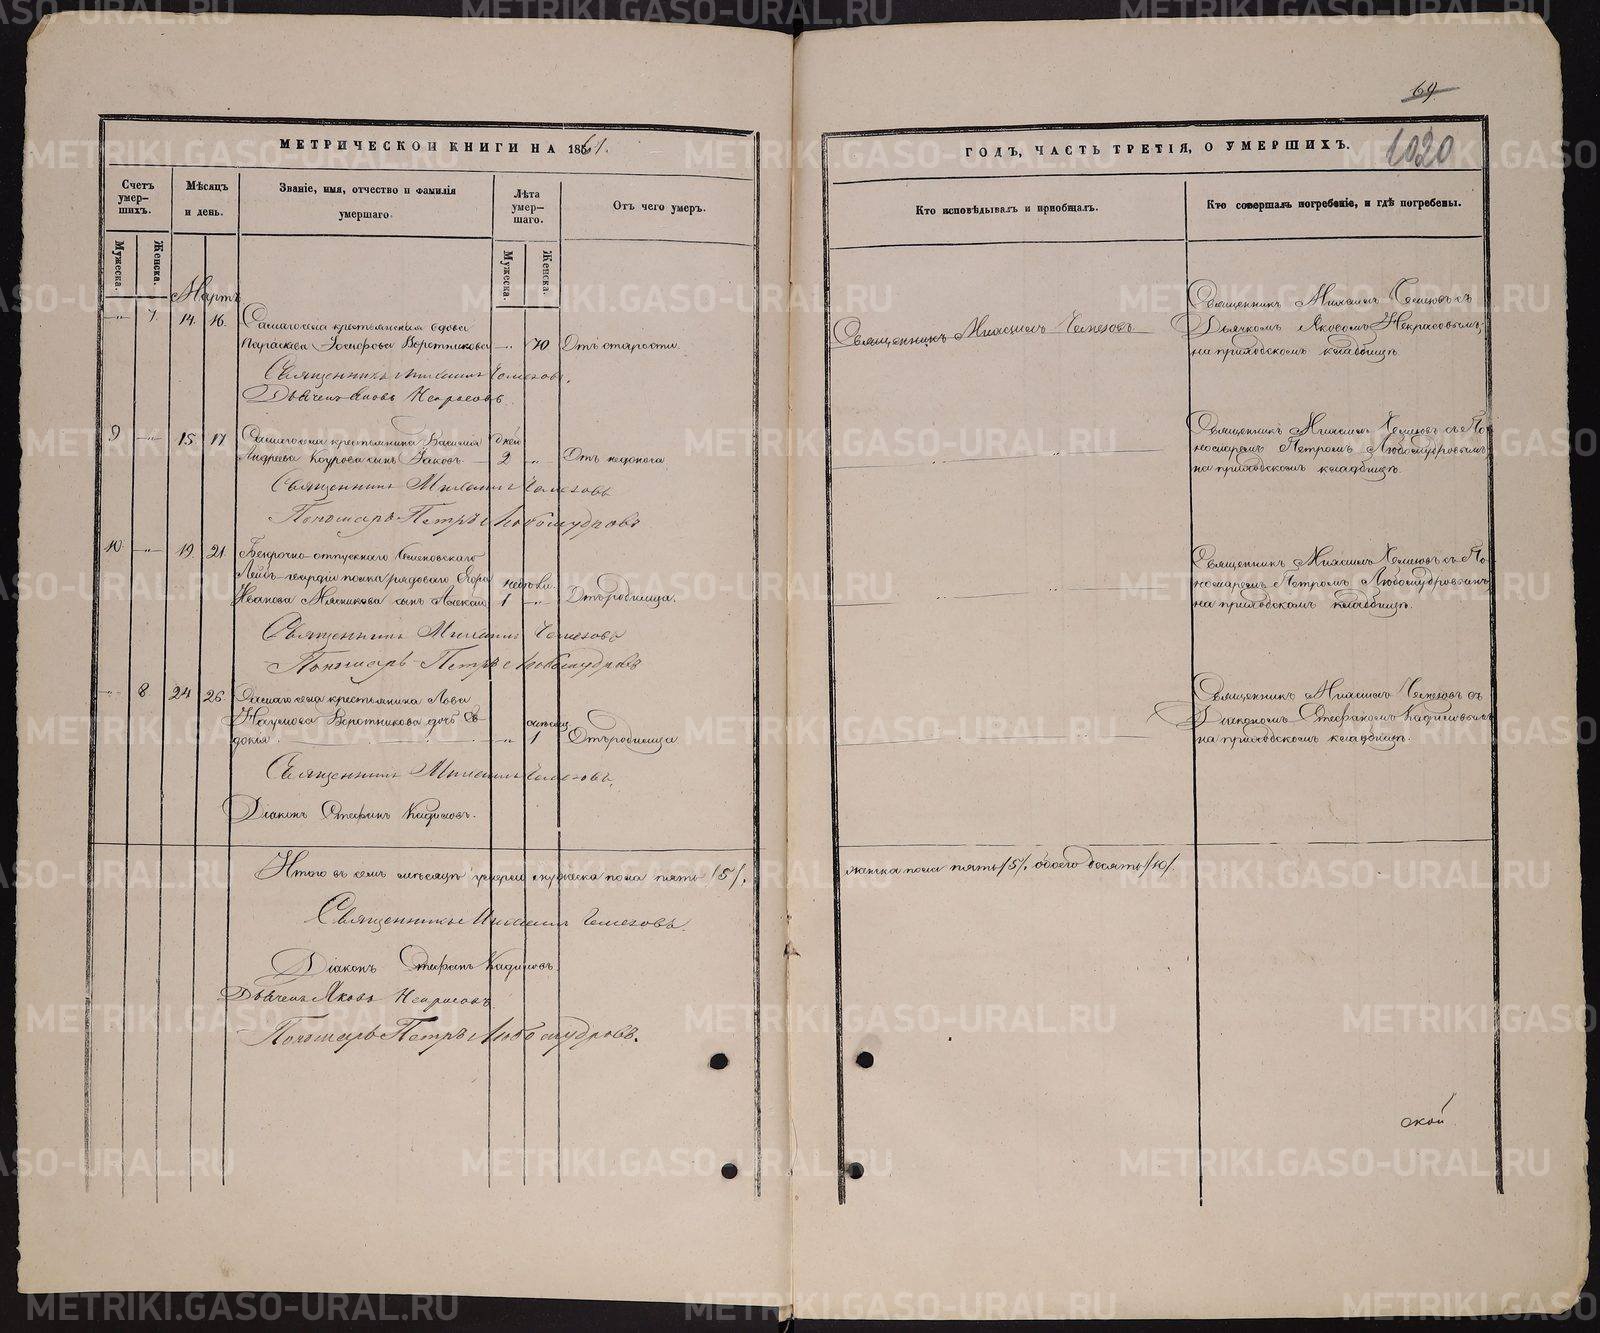 69
МЕТРИЧЕСКОЙ КНИГИ НА 1861.
Счетъ умер-шихъ.
Мѣсяцъ и день.
Званіе, имя, отчество и фамилія умершаго.
Лѣта умер-шаго.
Отъ чего умеръ.
Мужеска.
Женска.
Мужеска.
Женска.
Мартъ
7. 14. 16. Самаго села крестьянская вдова
Параскева Іосифова Воротникова 70 Отъ старости.
Священникъ Михаилъ Чемезовъ.
Дьячекъ Яковъ Некрасовъ.
9 15. 17 Самаго села крестьянина Василія дней
Андреева Коурова сынъ Іаковъ 2 Отъ недоноса.
Священникъ Михаилъ Чемезовъ
Пономарь Петръ Любомудровъ
10. 19. 21. Безсрочно-отпускнаго Семеновскаго
Лейбъ-гвардіи полка рядоваго Егора недѣли
Иванова Мясникова сынъ Алексій 1 Отъ родимца.
Священникъ Михаилъ Чемезовъ
Пономарь Петръ Любомудровъ
8. 24 26 Самаго села крестьянина Льва
Наумова Воротникова дочь Ев- мѣсяц
докія 1 Отъ родимца
Священникъ Михаилъ Чемезовъ.
Діаконъ Стефанъ Кадиловъ.
Итого въ семъ мѣсяцѣ умерло мужеска пола пять /5/,
Священникъ Михаилъ Чемезовъ.
Діаконъ Стефанъ Кадиловъ.
Дьячекъ Яковъ Некрасовъ
Пономарь Петръ Любомудровъ.
ГОДЪ, ЧАСТЬ ТРЕТІЯ, О УМЕРШИХЪ.
1020
Кто исповѣдывалъ и пріобщалъ.
Кто совершалъ погребеніе, и гдѣ погребены.
Священникъ Михаилъ Чемезовъ
Священникъ Михаилъ Чемезовъ съ
Дьячкомъ Яковомъ Некрасовымъ,
на приходскомъ кладбищѣ
Священникъ Михаилъ Чемезовъ съ По-
номаремъ Петромъ Любомудровымъ
на приходскомъ кладбищѣ.
Священникъ Михаилъ Чемезовъ съ По-
номаремъ Петромъ Любомудровымъ
на приходскомъ кладбищѣ.
Священникъ Михаилъ Чемезовъ съ
Діакономъ Стефаномъ Кадиловымъ
на приходскомъ кладбищѣ.
женска пола пять /5/, обоего десять /10/.
ской
METRIKI.GASO-URAL.RU